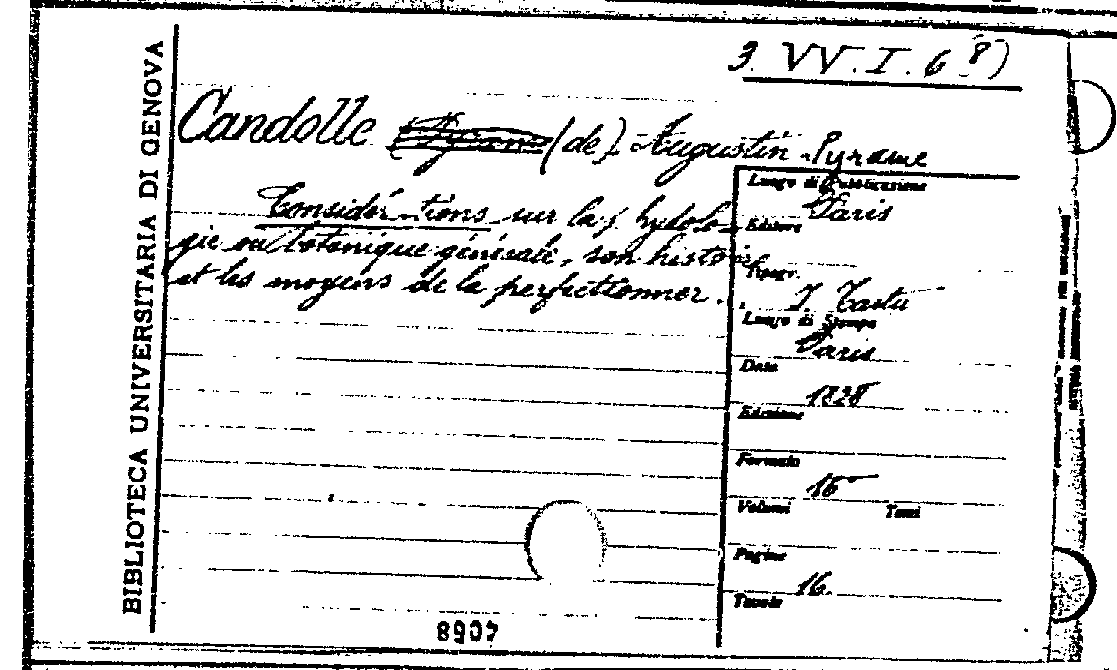 3. VV. I. 6 8)
BIBLIOTECA UNIVERSITARIA DI GENOVA
Candolle (de) Augustin-Pyrame
Considér tions sur la hydolo-
gie ou botanique générale, son histoire
et les moyens de la perfectionner.
Luogo di Pubblicazione
Paris
Editore
Tipogr.
J. Tastu
Luogo di Stampa
Paris
Data
1828
Edizione
Formato
16°
Volumi Tomi
Pagine
16.
Tavole